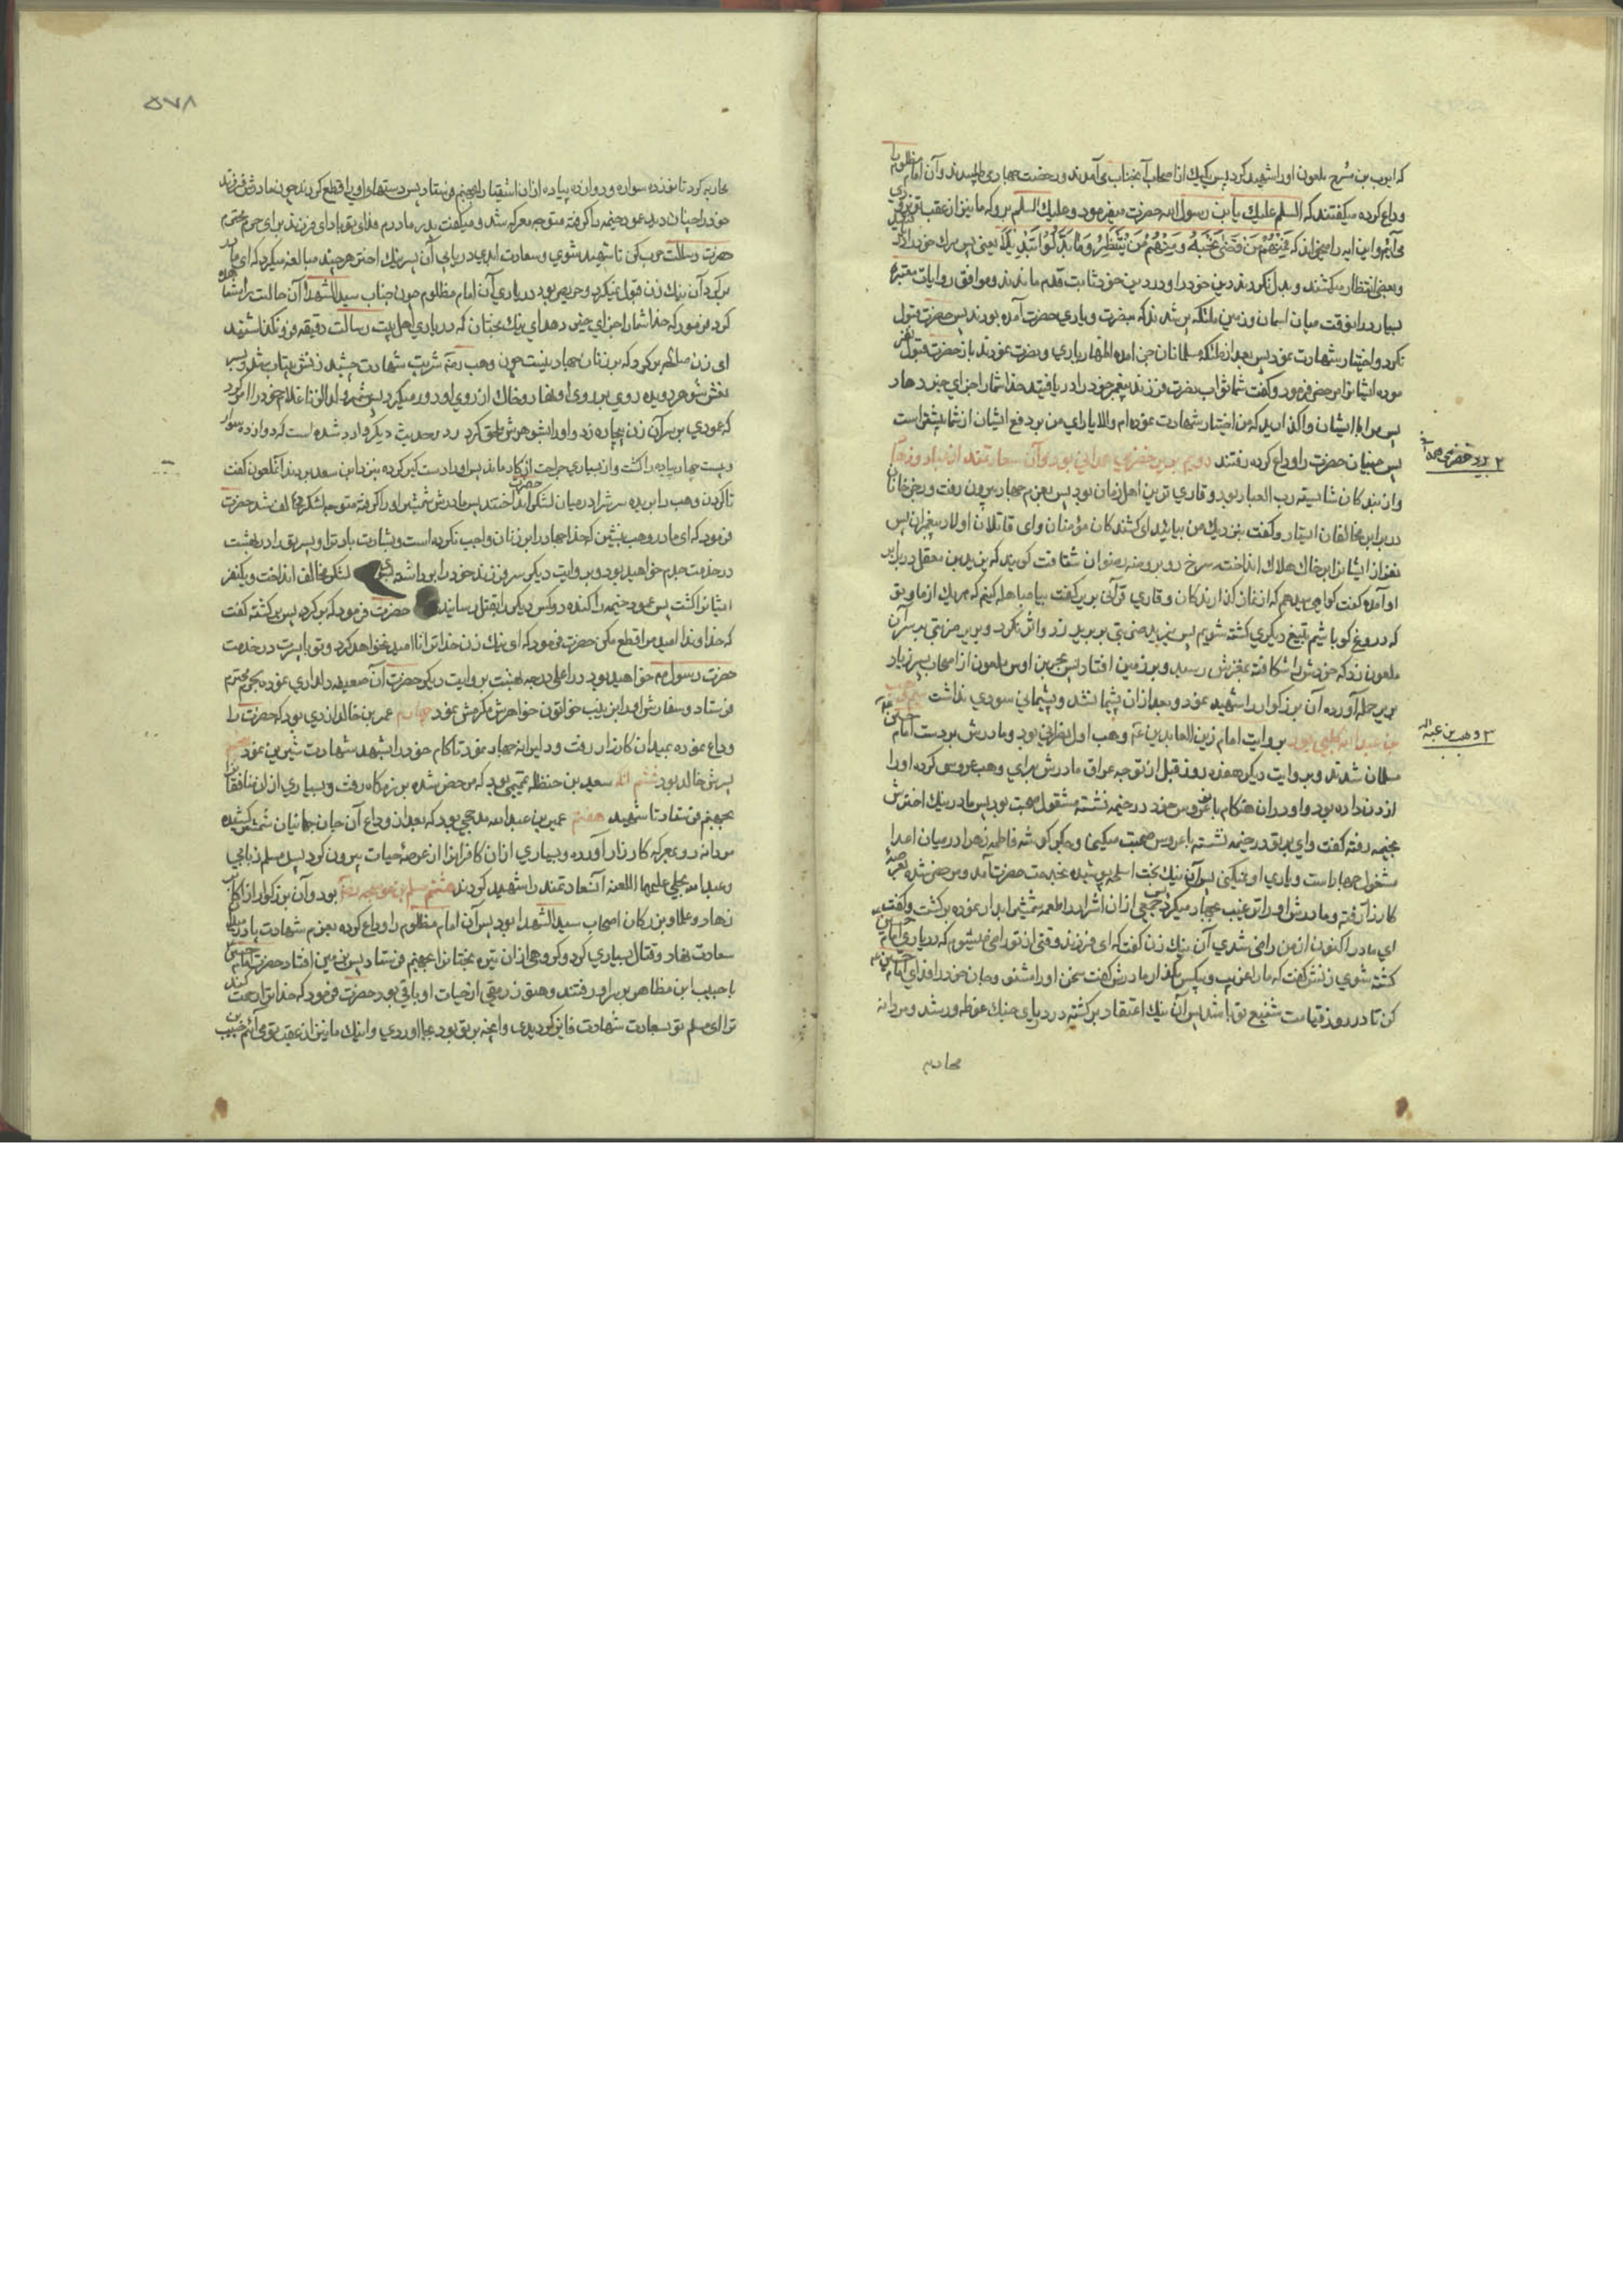 که ایوب بن سرح ملعون او را شهید کرد پس یک یک از اصحاب آنجناب می آمدند و رخصت جهاد می طلبیدند و آن امام مظلوم را
وداع کرده میگفتند که السلم علیک یابن رسول الله حضرت میفرمود و علیک السلم برو که ما نیز از عقب تو
می آئیم و این ایه را میخواند که فَمِنْهُمْ مَنْ قَضى نَحْبَهُ وَمِنْهُمْ مَنْ يَنْتَظِرُ وَمَا بَدَّلُوا تَبْدِيلاً یعنی پس
و بعضی انتظار میکشند و بدل نکردند دین خود را و در دین خود ثابت قدم ماندند و موافق روایات معتبره
بسیار در انوقت میان اسمان و زمین ملئکه پر شدند که بنصرت و یاری حضرت آمده بودند پس حضرت قبول
نکرد و اختیار شهادت نمود پس بعد از ملئکه مسلمانان جن امده اظهار یاری و نصرت نمودند باز حضرت قبول نفر
موده ایشانرا مرخص فرمود و گفت شما ثواب نصرت فرزند پیغمبر خود را دریافتید خدا شما را جزای خیر دهاد
پس مرا با ایشان واگذارید که من اختیار شهادت نموده ام والا یارای من بر دفع ایشان از شما بیشتر است
پس جنیان حضرت را وداع کرده رفتند دویم بریر بن خضیر همدانی بود و آن سعادتمند از عباد و زهاد
و از بندکان شایسته رب العباد بود و قاری ترین اهل زمان بود پس بعزم جهاد بیرون رفت و رجز خوانان
در برابر مخالفان ایستاد و گفت بنزدیک من بیائید ای کشندکان مؤمنان و ای قاتلان اولاد پیغمبران پس
نفر از ایشانرا بر خاک هلاک انداخته سرخ رو بروضه رضوان شتافت گویند که یزید بن معقل در برابر
او آمده گفت گواهی میدهم که از
که دروغ گو باشیم بتیغ دیگری کشته شویم پس یزید ضربتی بر بریر زد و اثر نکرد و بریر ضربتی بر سر آن
ملعون زد که خودش را شکافته بمغزش رسید و بر زمین افتاد پس بحیر بن اوس ملعون از اصحاب پسر زیاد
بریر حمله آورده آن بزرکوار را شهید نمود و بعد از ان پشیمان شد و پشیمانی سودی نداشت سیم وهب
بن عبد الله کلبی بود بروایت امام زین العابدین ع وهب اول نصرانی بود و مادرش بر دست امام حسین
مسلمان شدند و بروایت دیگر هفده روز قبل از توجه عراق مادرش برای وهب عروس کرده او را
زن داده بود و او در ان هنگام با عروس خود در خیمه نشسته مشغول صحبت بود پس مادر نیک اخترش
بخیمه رفته گفت وای بر تو در خیمه نشسته با عروس صحبت میکنی و جگر گوشه فاطمه زهرا در میان اعدا
مشغول جهاد است و یاری او نمیکنی پس آن نیک بخت اسلحه پوشیده بخدمت حضرت آمد و مرخص شده بعرصه
کارزار رفته و مادرش او را ترغیب بجهاد میکرد پس جمعی از ان اشرار را طعمه شمشیر ابدار نموده برگشت و گفت
ای مادر اکنون از من راضی شدی آن نیک زن گفت که ای فرزند وقتی از تو راضی میشوم که در یاری امام حسین
کشته شوی زنش گفت که مارا غریب و بیکس مگذار مادرش گفت سخن او را مشنو و جان خود را فدای امام حسین
کن تا در روز قیامت شفیع تو باشد پس آن نیک اعتقاد برگشته در دریای جنک غوطه ور شد و مردانه
محاربه
۲ بریر خضیر همدانی
۳ وهب بن عبد الله
۵۷۸
محاربه کرد تا نوزده سواره و دوازده پیاده از ان اشقیا را بجهنم فرستاد پس دستهای او را قطع کردند چون مادرش فرزند
خود را چنان دید عمود خیمه را گرفته متوجه معرکه شد و میگفت پدر و مادرم فدای تو باد ای فرزند برای حرم محترم
حضرت رسالت حرب کن تا شهید شوی و سعادت ابدی دریابی آن پسر نیک اختر هر چند مبالغه میکرد که ای مادر
برگرد آن نیک زن قبول نمیکرد و حریص بود در یاری آن امام مظلوم چون جناب سید الشهدا آن حالت را مشاهده
کرد فرمود که خدا شما را جزای خیر دهد ای نیک بختان که در یاری اهل بیت رسالت دقیقه فرو نگذاشتید
ای زن صالحه برگرد که بر زنان جهاد نیست چون وهب رضه شربت شهادت چشید زنش بیتاب شد و بسر
نعش شوهر دویده روی بر روی او نهاد و خاک از روی او دور میکرد پس شمر ولد الزنا غلام خود را امر کرد
که عمودی بر سر آن زن بیچاره زد و او را بشوهرش ملحق کرد و در حدیث دیگر وارد شده است که دوازده سوار
و بیست چهار پیاده را کشت و از بسیاری جراحت از کار ماند پس او را دستگیر کرده بنزد ابن سعد بردند آنملعون گفت
تا گردن وهب را بریده سرش را در میان لشکر حضرت انداختند پس مادرش شمشیر او را گرفته متوجه لشکر مخالف شد حضرت
فرمود که ای مادر وهب بنشین که خدا جهاد را بر زنان واجب نکرده است و بشارت باد ترا و پسر تو را در بهشت
در خدمت جدم خواهید بود و بروایت دیگر سر فرزند خود را برداشته لشکر مخالف انداخت و یکنفر
ایشانرا کشت پس عمود خیمه را کنده دو کس دیگر را بقتل رسانید حضرت فرمود که برگرد پس برگشته گفت
که خداوندا امید مرا قطع مکن حضرت فرمود که ای نیک زن خدا ترا نا امید نخواهد کرد و تو با پسرت در خدمت
حضرت رسول ص خواهید بود در اعلی درجه بهشت بروایت دیگر حضرت آن ضعیفه را دلداری نموده بحرم محترم
فرستاد و سفارش او را بزینب خواتون خواهرش مکرمش نمود چهارم عمر بن خالد ازدی بود که حضرت را
وداع نموده بمیدان کارزار رفت و دلیرانه جهاد نمود تا کام خود را بشهد شهادت شیرین نمود پنجم
پسرش خالد بود ششم سعد بن حنظله تمیمی بود که مرخص شده برزمگاه رفت و بسیاری از ان منافقان
بجهنم فرستاد تا شهید هفتم عمیر بن عبدالله مذحجی بود که بعد از وداع آن جان جهانیان شمشیر کشیده
مردانه رو بمعرکه کارزار آورده و بسیاری از ان کافران را از عرصه حیات بیرون کرد پس مسلم ضبابی
و عبدالله بجلی علیهما اللعنه آنسعادتمند را شهید کردند هشتم مسلم بن عوسجه رضه بود و آن بزرکوار از اکابر
زهاد و عباد و بزرکان اصحاب سید الشهدا بود پس آن امام مظلوم را وداع کرده بعزم شهادت پا در
سعادت نهاد و قتال بسیاری کرد و گروهی از ان تیره بختانرا بجهنم فرستاد پس بر زمین افتاد حضرت امام حسین
با حبیب ابن مظاهر بر سر او رفتند و هنوز رمقی از حیات او باقی بود حضرت فرمود که خدا ترا رحمت کند
ترا ای مسلم تو بسعادت شهادت فایز گردیدی و انچه بر تو بود بجا اوردی و اینک ما نیز از عقب تو می آئیم حبیب